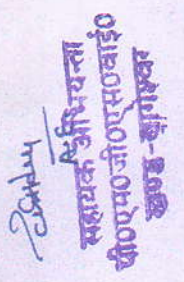 सहायक अभियन्ता
पी०एम०जी०एस०वाई०
खण्ड-बागेश्वर